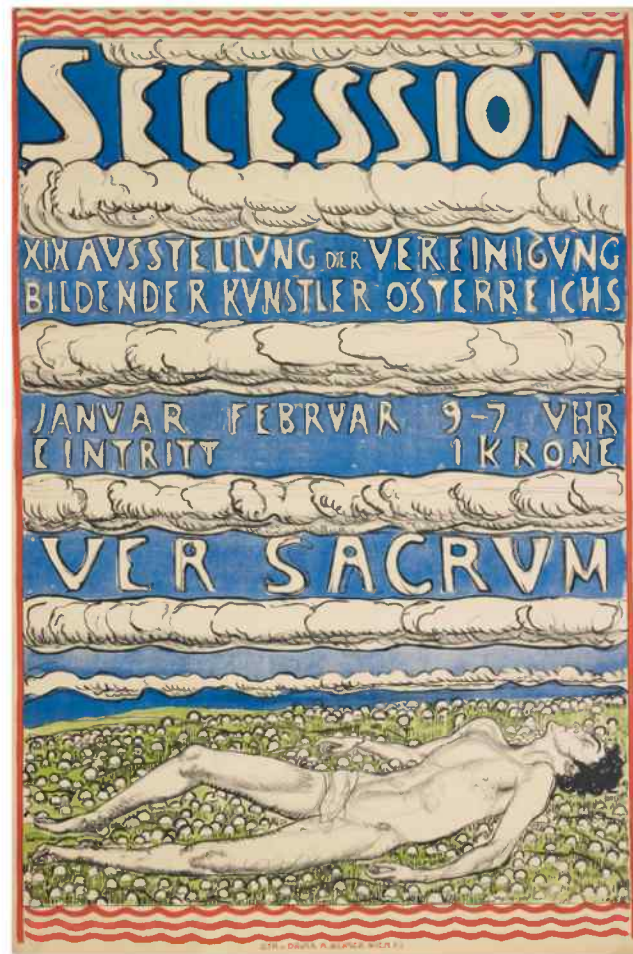 SECESSION
XIX AVSSTELLVNG DER VEREINIGVNG
BILDENDER KVNSTLER OSTERREICHS
JANVAR FEBRVAR 9-7 VHR
EINTRITT 1 KRONE
VER SACRVM